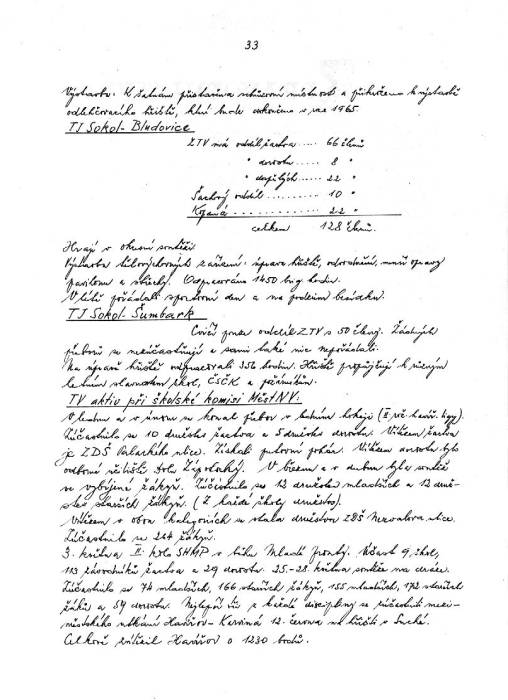 33
Výstavba: K šatnám přistavěna místnost a přikročeno k výstavbě
odlehčovacího hřiště, které bude dokončeno v roce 1965.
TJ Sokol - Bludovice
ZTV má oddíl žactva ..... 66 členů
" dorostu ...... 8 "
" dospělých ...... 22 "
Šachový oddíl .......... 10 "
Kopaná ............... 22 "
celkem 128 členů.
Hrají v okresní soutěži.
Výstavba tělovýchovných zařízení: úprava hřiště, odvodnění, menší opravy
pavilonu a střechy. Odpracováno 1450 brig. hodin.
V létě pořádali sportovní den a na podzim besídku.
TJ Sokol - Šumbark
Cvičí pouze oddíl ZTV s 50 členy. Žádných
přeborů se nezúčastňují a sami také nic nepořádali.
Na úpravě hřiště odpracovali 352 hodin. Hřiště propůjčují k různým
letním slavnostem škol, ČSČK a požárníkům.
TV aktiv při školské komisi MěstNV.
V lednu a v únoru se konal přebor v ledním hokeji
Zúčastnilo se 10 družstev žactva a 5 družstev dorostu. Vítězem žactva
je ZDŠ Palackého ulice. Získali putovní pohár. Vítězem dorostu bylo
odborné učiliště Dolu Zápotocký. V březnu a v dubnu byla soutěž
ve vybíjené žákyň. Zúčastnilo se 12 družstev mladších a 12 druž-
stev starších žákyň. (Z každé školy družstvo).
Vítězem v obou kategoriích se stala družstva ZDŠ Nezvalova ulice.
Zúčastnilo se 264 žákyň.
3. května II. kolo SHMP v běhu Mladé fronty. Účast 9 škol,
113 závodníků žactva a 29 dorostu. 25.-28. května soutěže na dráze.
Zúčastnilo se 74 mladších, 166 starších žákyň, 155 mladších, 172 starších
žáků a 54 dorostu. Nejlepší z každé disciplíny se zúčastnili mezi-
městského utkání Havířov - Karviná 12. června na hřišti v Suché.
Celkově zvítězil Havířov o 1230 bodů.